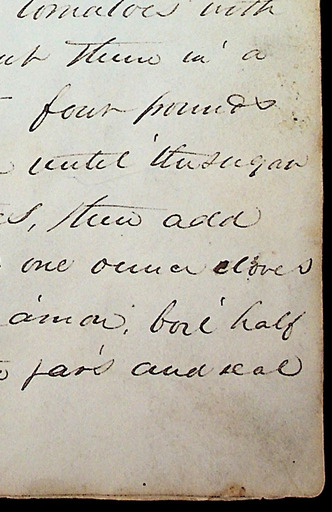 tomatoes with
ut them in a
four pounds
until the sugar
es, then add
one ounce cloves
amon, boil half
jars and seal